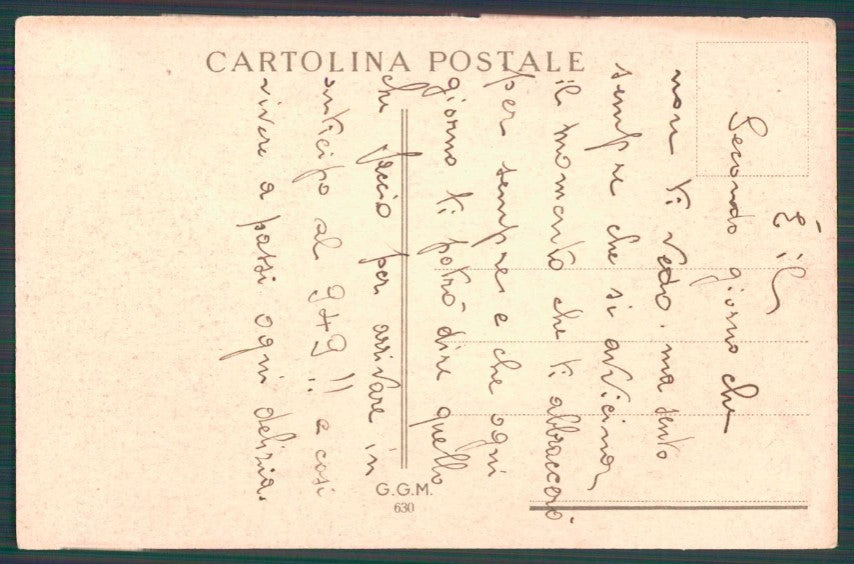 CARTOLINA POSTALE
È il
Secondo giorno che
non ti vedo. ma sento
sempre che si avvicina
il momento che ti abbraccerò
per sempre e che ogni
giorno ti potrò dire quello
che faccio per arrivare in
anticipo al 949!! e così
vivere a passi ogni delizia.
G.G.M.
630